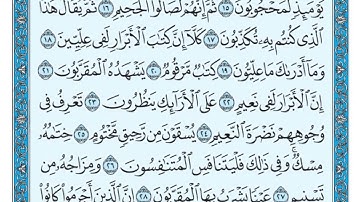 يَوْمَئِذٍ لَّمَحْجُوبُونَ ١٥ ثُمَّ إِنَّهُمْ لَصَالُوا الْجَحِيمِ ١٦ ثُمَّ يُقَالُ هَٰذَا
الَّذِي كُنتُم بِهِ تُكَذِّبُونَ ١٧ كَلَّا إِنَّ كِتَابَ الْأَبْرَارِ لَفِي عِلِّيِّينَ ١٨
وَمَا أَدْرَاكَ مَا عِلِّيُّونَ ١٩ كِتَابٌ مَّرْقُومٌ ٢٠ يَشْهَدُهُ الْمُقَرَّبُونَ ٢١
إِنَّ الْأَبْرَارَ لَفِي نَعِيمٍ ٢٢ عَلَى الْأَرَائِكِ يَنظُرُونَ ٢٣ تَعْرِفُ فِي
وُجُوهِهِمْ نَضْرَةَ النَّعِيمِ ٢٤ يُسْقَوْنَ مِن رَّحِيقٍ مَّخْتُومٍ ٢٥ خِتَامُهُ
مِسْكٌ وَفِي ذَٰلِكَ فَلْيَتَنَافَسِ الْمُتَنَافِسُونَ ٢٦ وَمِزَاجُهُ مِن
تَسْنِيمٍ ٢٧ عَيْنًا يَشْرَبُ بِهَا الْمُقَرَّبُونَ ٢٨ إِنَّ الَّذِينَ أَجْرَمُوا كَانُوا